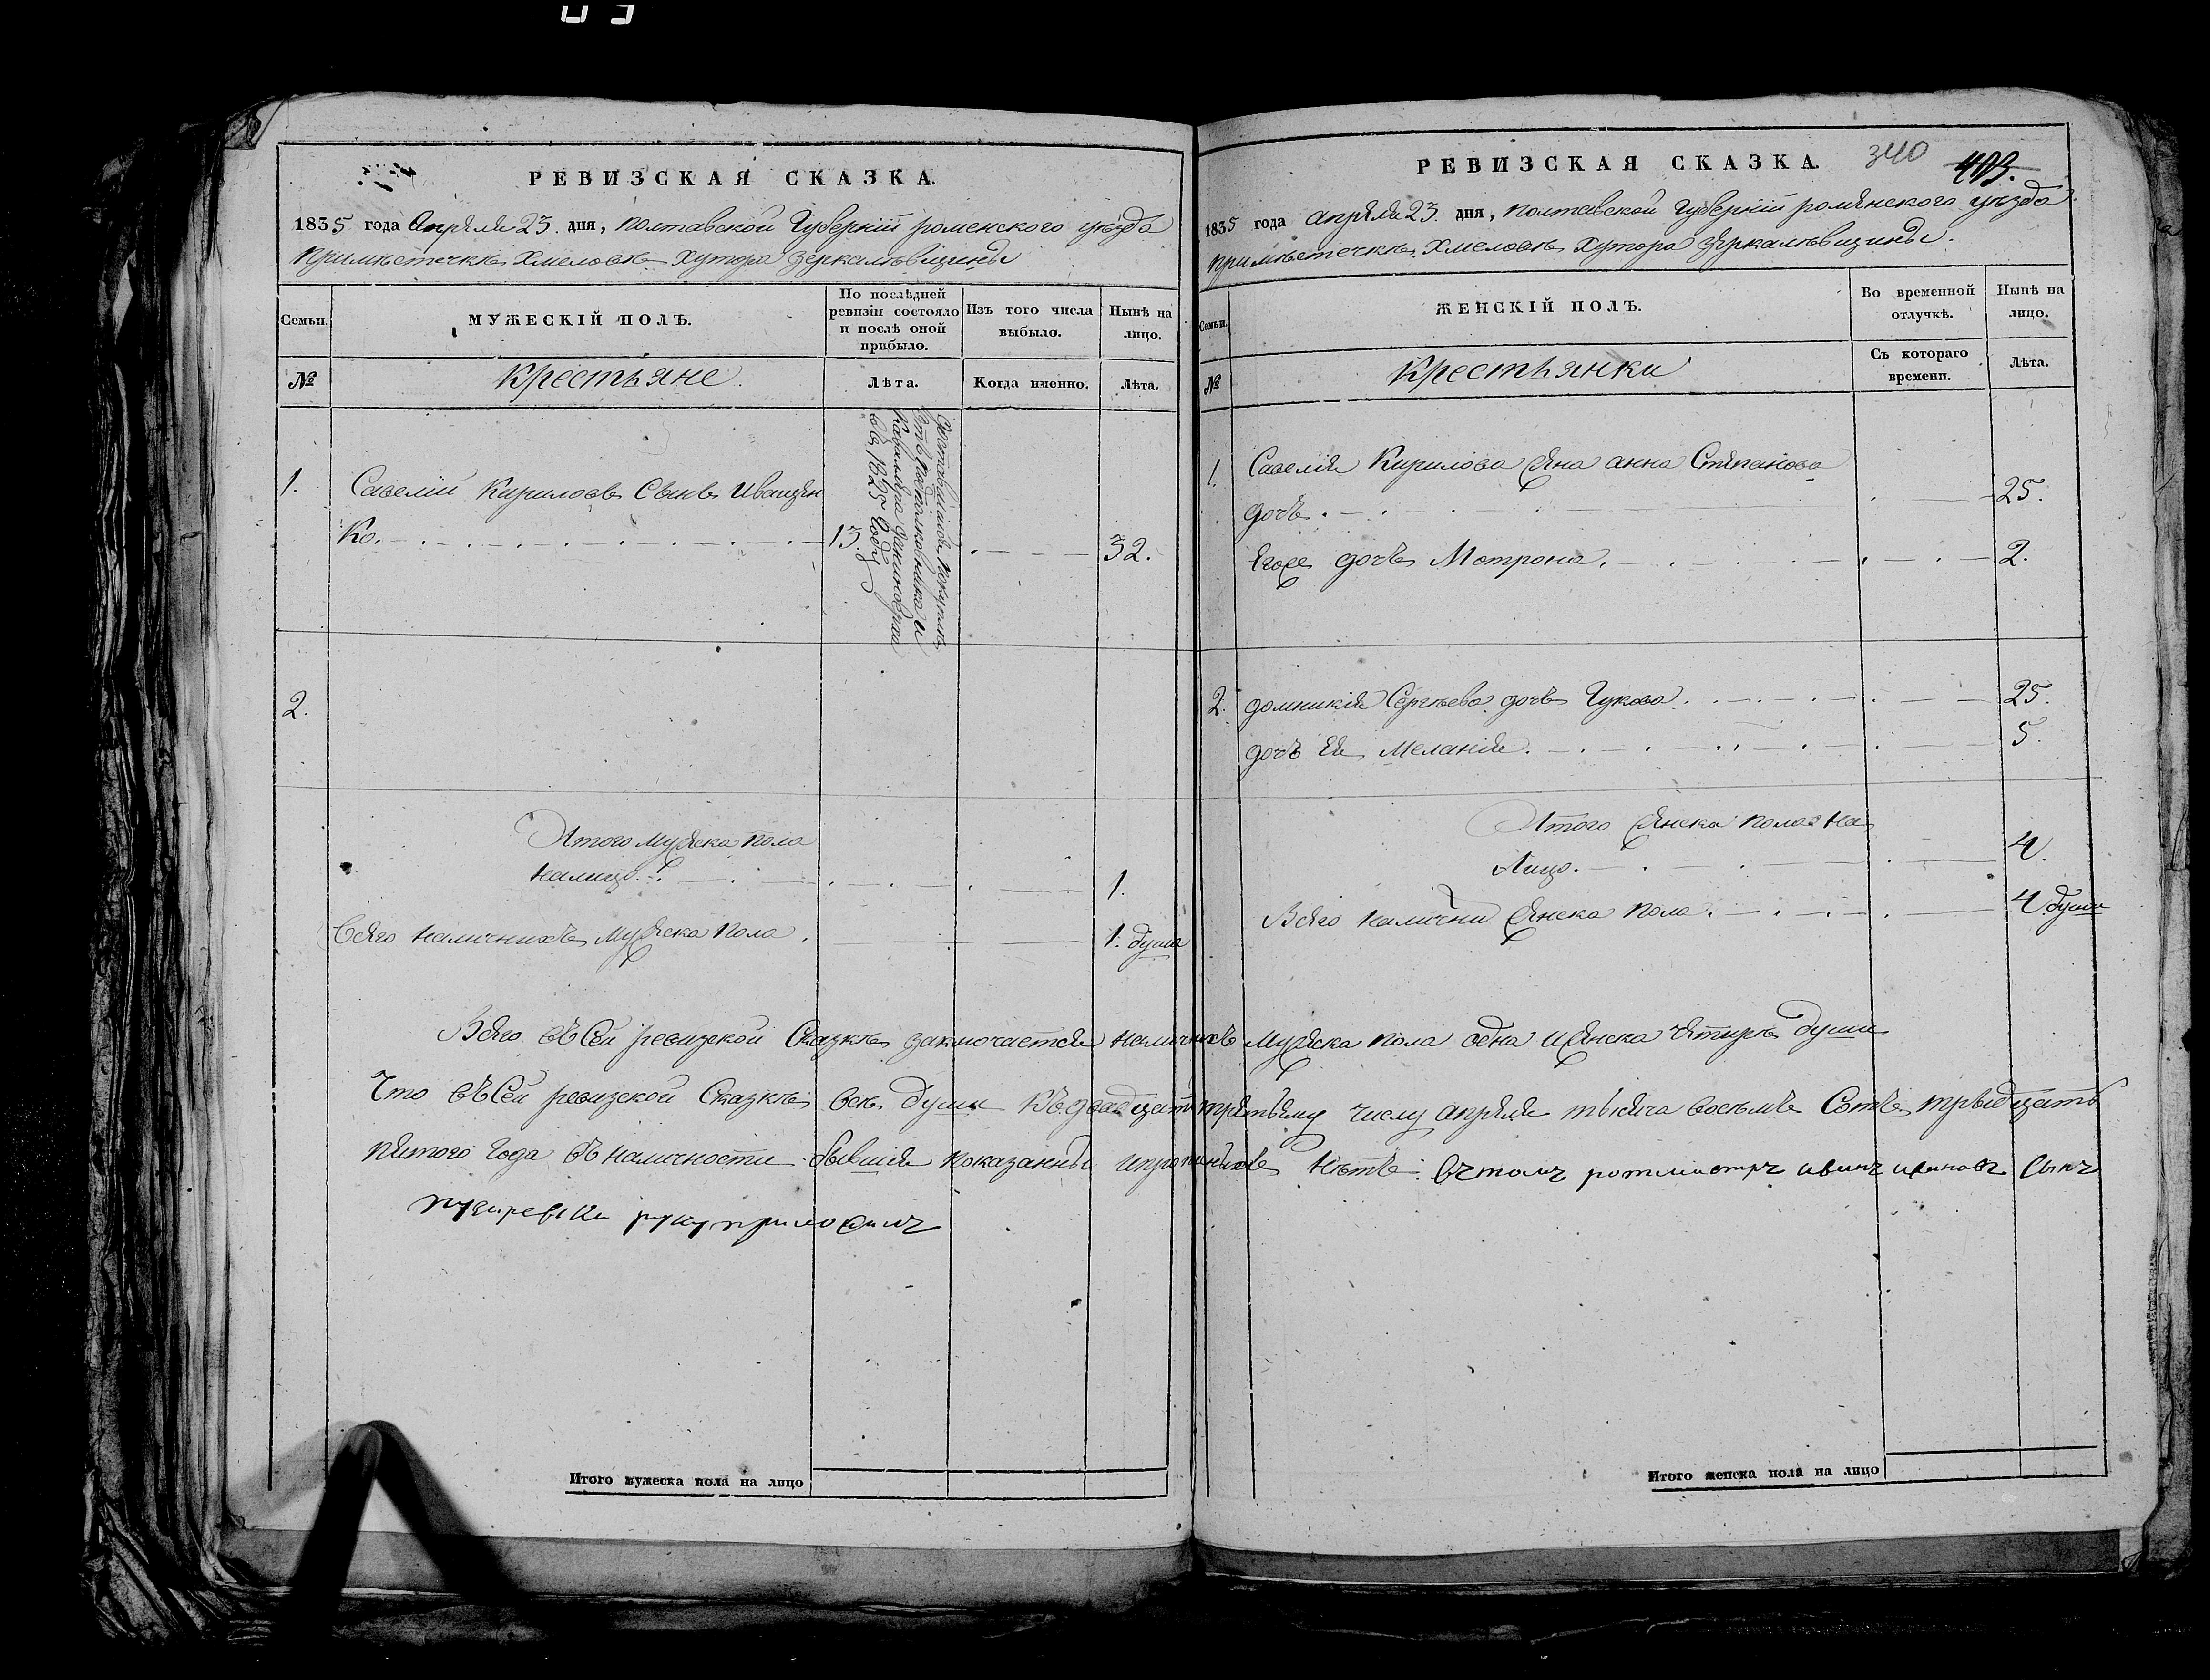 РЕВИЗСКАЯ СКАЗКА.
1835 года Апреля 23. дня, Полтавской Губерніи роменского уезда
при местечке Хмеловке Хутора Зеркалевщины
Семьи.
МУЖЕСКІЙ ПОЛЪ.
По послѣдней ревизіи состояло и послѣ оной прибыло.
Изъ того числа выбыло.
Нынѣ на лицо.
№
Крестьяне.
Лѣта.
Когда именно.
Лѣта.
1. Савелій Кириловъ Сынъ Иващен
ко. 13. 32.
подполковника и
Кавалера
въ 1825 Году
2.
Итого Мужеска пола
налицо. 1.
Всего наличнихъ Мужеска Пола. 1. душа
Итого мужеска пола на лицо
РЕВИЗСКАЯ СКАЗКА.
340
403.
1835 года апреля 23. дня, Полтавской Губерніи роменского уезда.
при местечке Хмеловке Хутора Зеркалевщины.
Семьи.
ЖЕНСКІЙ ПОЛЪ.
Во временной отлучкѣ.
Нынѣ на лицо.
№
Крестьянки
Съ котораго времени.
Лѣта.
1. Савелія Кирилова жена анна Степанова
дочь. 25.
Егоже дочь Мотрона. 2.
2. домникія Сергеева дочь Гукова. 25.
дочь Ея Меланія. 5.
Итого женска пола на
Лицо. 4.
Всего налични женска пола. 4. души
Всего въ Сей ревизской Сказке заключается наличнихъ мужеска пола одна и женска четыре души
Что въ Сей ревизской Сказке все души къ двадцать третьему числу апреля тысяча восемъ Сотъ тридцать
пятого Года въ наличности бывшія показанны и прописнихъ нетъ: въ томъ ротмистръ иванъ ивановъ сынъ
руку приложилъ
Итого женска пола на лицо